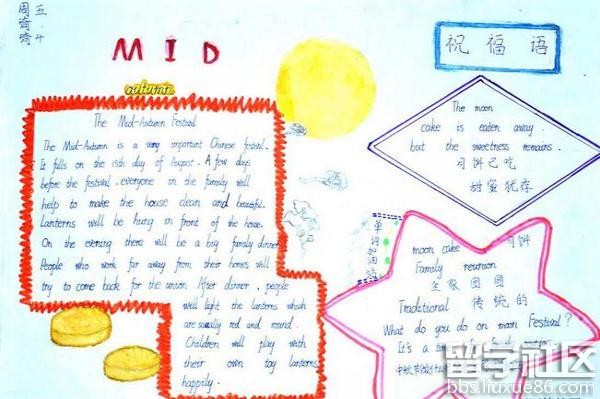 五.4
周
MID
autumn
The Mid-Autumn Festival
The Mid-Autumn is a very important Chinese festival.
It falls on the 15th day of August. A few days
before the festival, everyone in the family will
help to make the house clean and beautiful.
Lanterns will be hung in front of the house.
On the evening there will be a big family dinner.
People who work far away from their homes will
try to come back for the union. After dinner, people
will light the lanterns which
are usually red and round.
Children will play with
their own toy lanterns
happily.
祝福语
The moon
cake is eaten away.
but the sweetness remains.
月饼已吃
甜蜜犹存
单词加油站
moon cake 月饼
Family reunion
全家团圆
Traditional 传统的
What do you do on moon Festival?
It's a family
中秋
留学社区
bbs.liuxue86.com